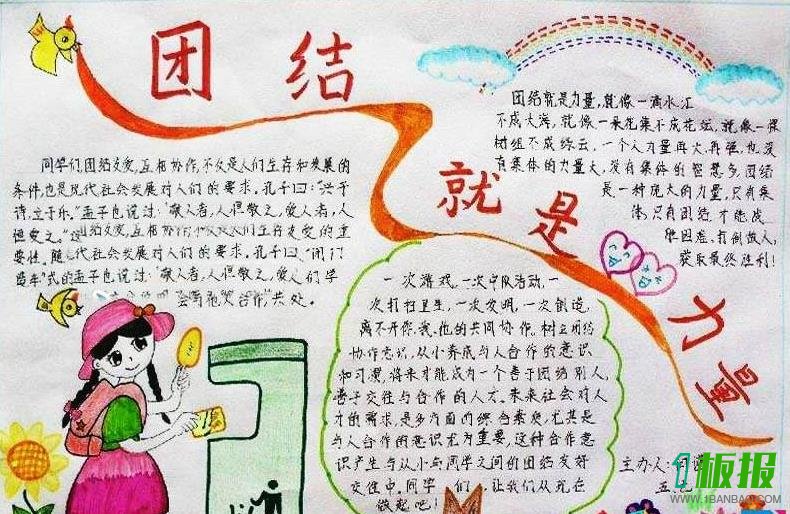 团结
就是
力量
同学们,团结友爱,互相协作,不仅是人们生存和发展的
条件,也是现代社会发展对人们的要求。孔子曰:“兴于
诗,立于乐。”孟子也说过:“敬人者,人恒敬之,爱人者,人
恒爱之。”团结友爱,互相协作
要性。随代社会发展对人们的要求。孔子曰、“闭门
造车”式的孟子也说过:“敬人者,人恒敬之,爱人们学
会和他人合作,共处。
团结就是力量,就像一滴水汇
不成大海,就像一朵花集不成花坛,就像一棵
树组不成绿云,一个人力量再大,再强,也没
有集体的力量大,没有集体的智慧多,团结
是一种庞大的力量,只有集
体,只有团结,才能战
胜困难、打倒敌人,
获取最然胜利!
一次游戏,一次中队活动,一
次打扫卫生,一次发明,一次创造,
离不开你、我、他的共同协作。树立团结
协作意识,从小养成与人合作的意识
和习惯,将来才能成为一个善于团结别人,
善于交往与合作的人才。未来社会对人
才的需求,是多方面的综合素质,尤其是
与人合作的意识尤为重要,这种合作意
识产生与从小与同学之间的团结友好
交往中。同学们,让我们从现在
做起吧!
主办人:
五、
1板报
WWW.1BANBAO.COM